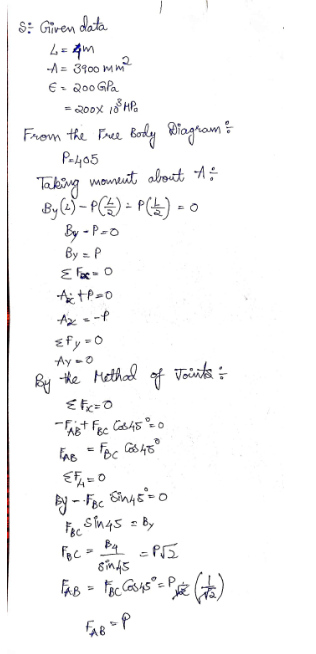 S:- Given data
L = 4m
A = 3900 mm²
E = 200 GPa
= 200 x 10³ MPa
From the Free Body Diagram :-
P=405
Taking moment about A :-
By(L) - P(L/2) - P(L/2) = 0
By - P = 0
By = P
Σ Fx = 0
Ax + P = 0
Ax = -P
Σ Fy = 0
Ay = 0
By the Method of Joints :-
Σ Fx = 0
-FAB + FBC Cos45° = 0
FAB = FBC Cos45°
ΣFy = 0
By - FBC Sin45° = 0
FBC Sin45 = By
FBC = By / Sin45 = P√2
FAB = FBC Cos45° = P√2 (1/√2)
FAB = P